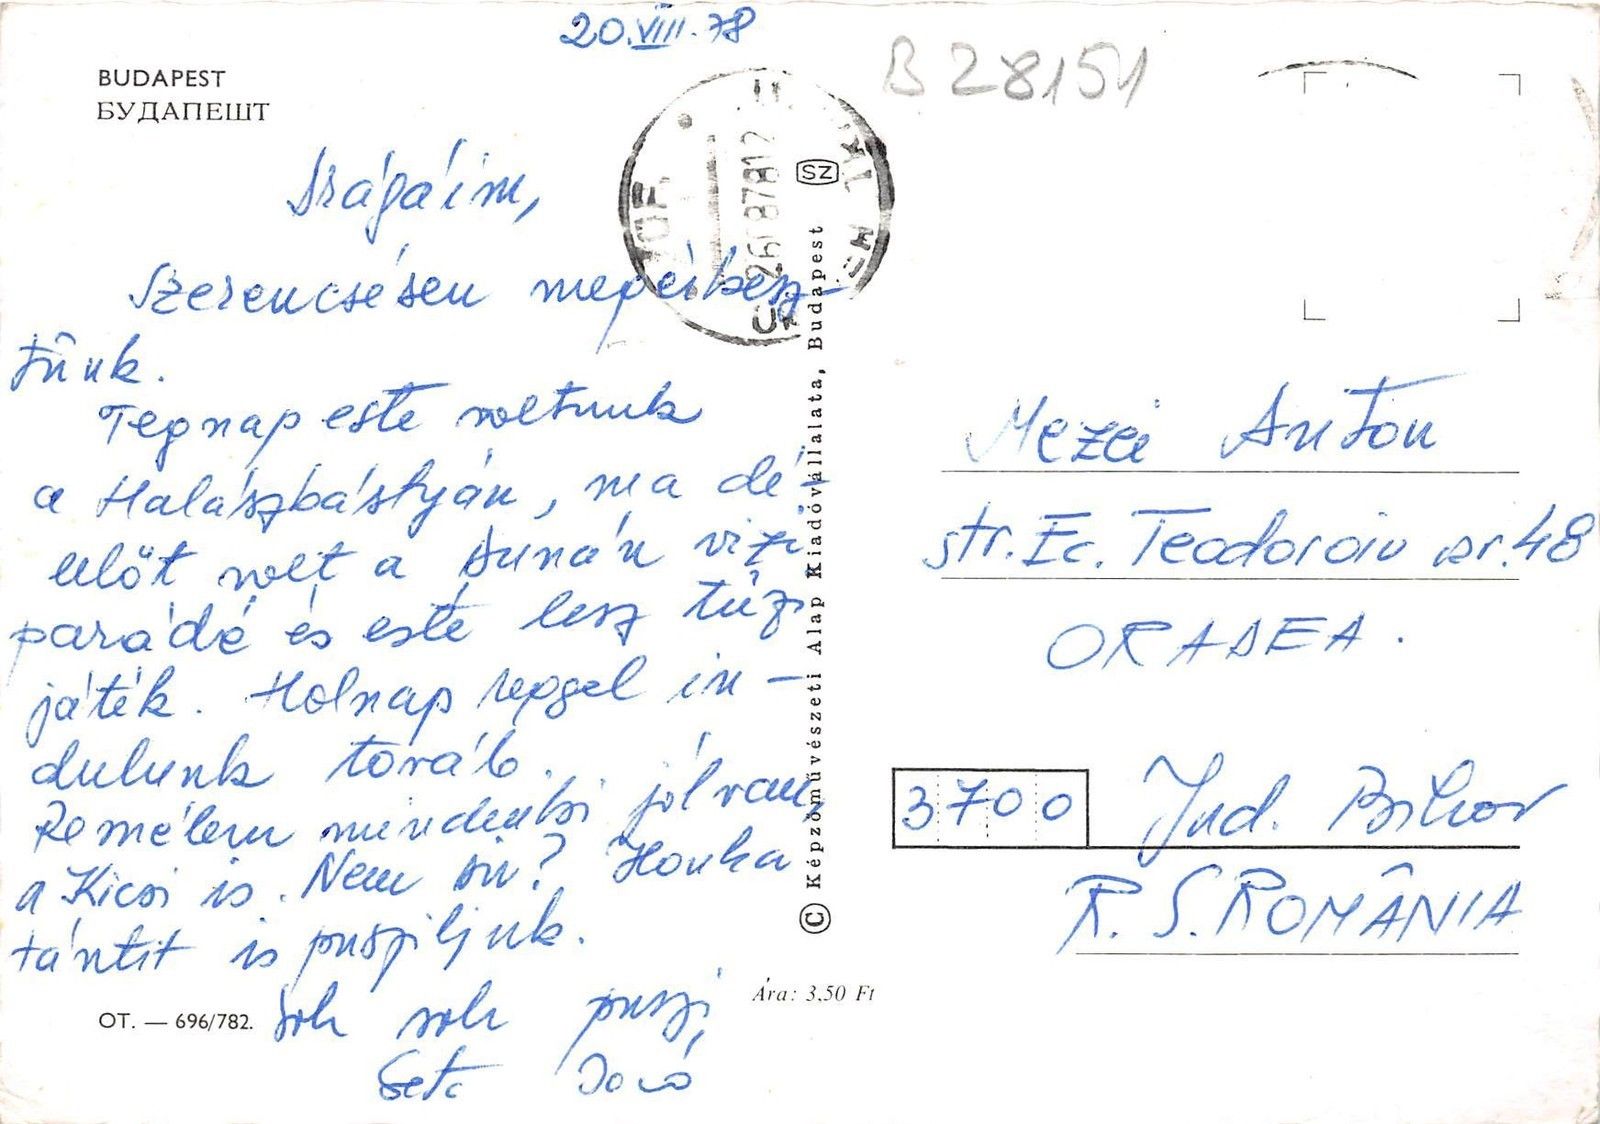 20.VIII.78
B 28151
BUDAPEST
БУДАПЕШТ
Drágáim,
Szerencsésen megérkez-
tünk.
Tegnap este voltunk
a Halászbástyán, ma dé-
lelőt volt a Dunán vizi
parádé és este lesz tűzi
játék. Holnap reggel in-
dulunk továb.
Remélem mindenki jól van,
a Kicsi is. Nem sir? Ilonka
tántit is puszijuk.
Sok sok puszi,
Geta
OT. — 696/782.
Ára: 3,50 Ft
© Képzőművészeti Alap Kiadóvállalata, Budapest
SZ
Mezei Anton
str. Ec. Teodoroiu nr. 48
ORADEA.
3700 Jud. Bihor
R. S. ROMÂNIA